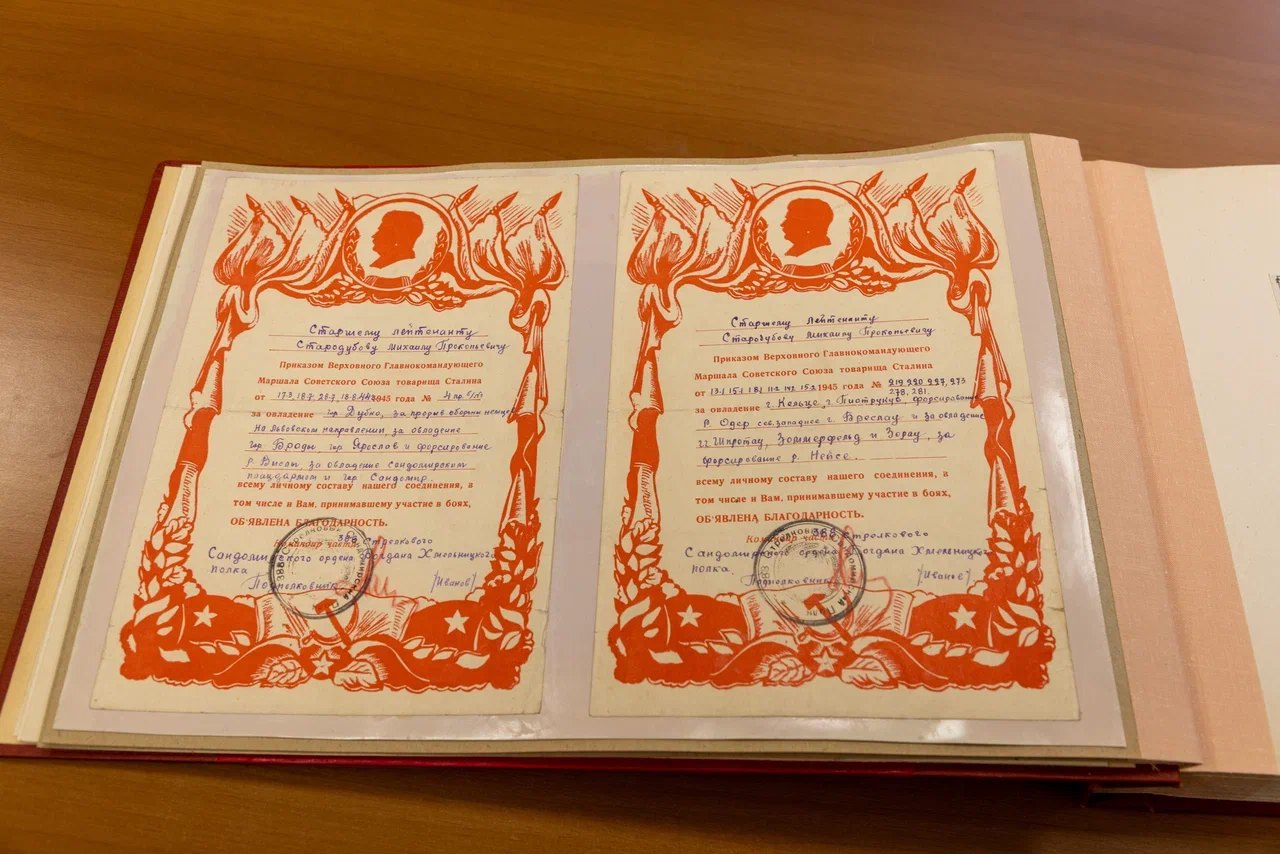 Старшему лейтенанту
Стародубову Михаилу Прокопьевичу
Приказом Верховного Главнокомандующего
Маршала Советского Союза товарища Сталина
от 17.3, 18.7, 28.7, 18.8.44 1945 года №
за овладение гор Дубно, за прорыв обороны немцев
на Львовском направлении, за овладение
гор Броды гор Ярослав и форсирование
р Вислы за овладение Сандомирским
плацдармом и гор Сандомир.
всему личному составу нашего соединения, в
том числе и Вам, принимавшему участие в боях,
ОБ'ЯВЛЕНА БЛАГОДАРНОСТЬ.
Командир части 388 Стрелкового
Сандомирского ордена Богдана Хмельницкого
полка
Подполковник /Иванов/
Старшему лейтенанту
Стародубову Михаилу Прокопьевичу
Приказом Верховного Главнокомандующего
Маршала Советского Союза товарища Сталина
от 13.1 15.1 18.1 11.2 14.2 15.2 1945 года № 219 220 227, 273
278, 281.
за овладение г. Кельце, г. Пиотркув форсирование
р. Одер сев. западнее г. Бреслау и за овладение
гг Шпротау, Зоммерфельд и Зорау, за
форсирование р. Нейсе.
всему личному составу нашего соединения, в
том числе и Вам, принимавшему участие в боях,
ОБ'ЯВЛЕНА БЛАГОДАРНОСТЬ.
Командир части 388 Стрелкового
Сандомирского ордена Богдана Хмельницкого
полка.
Подполковник /Иванов/